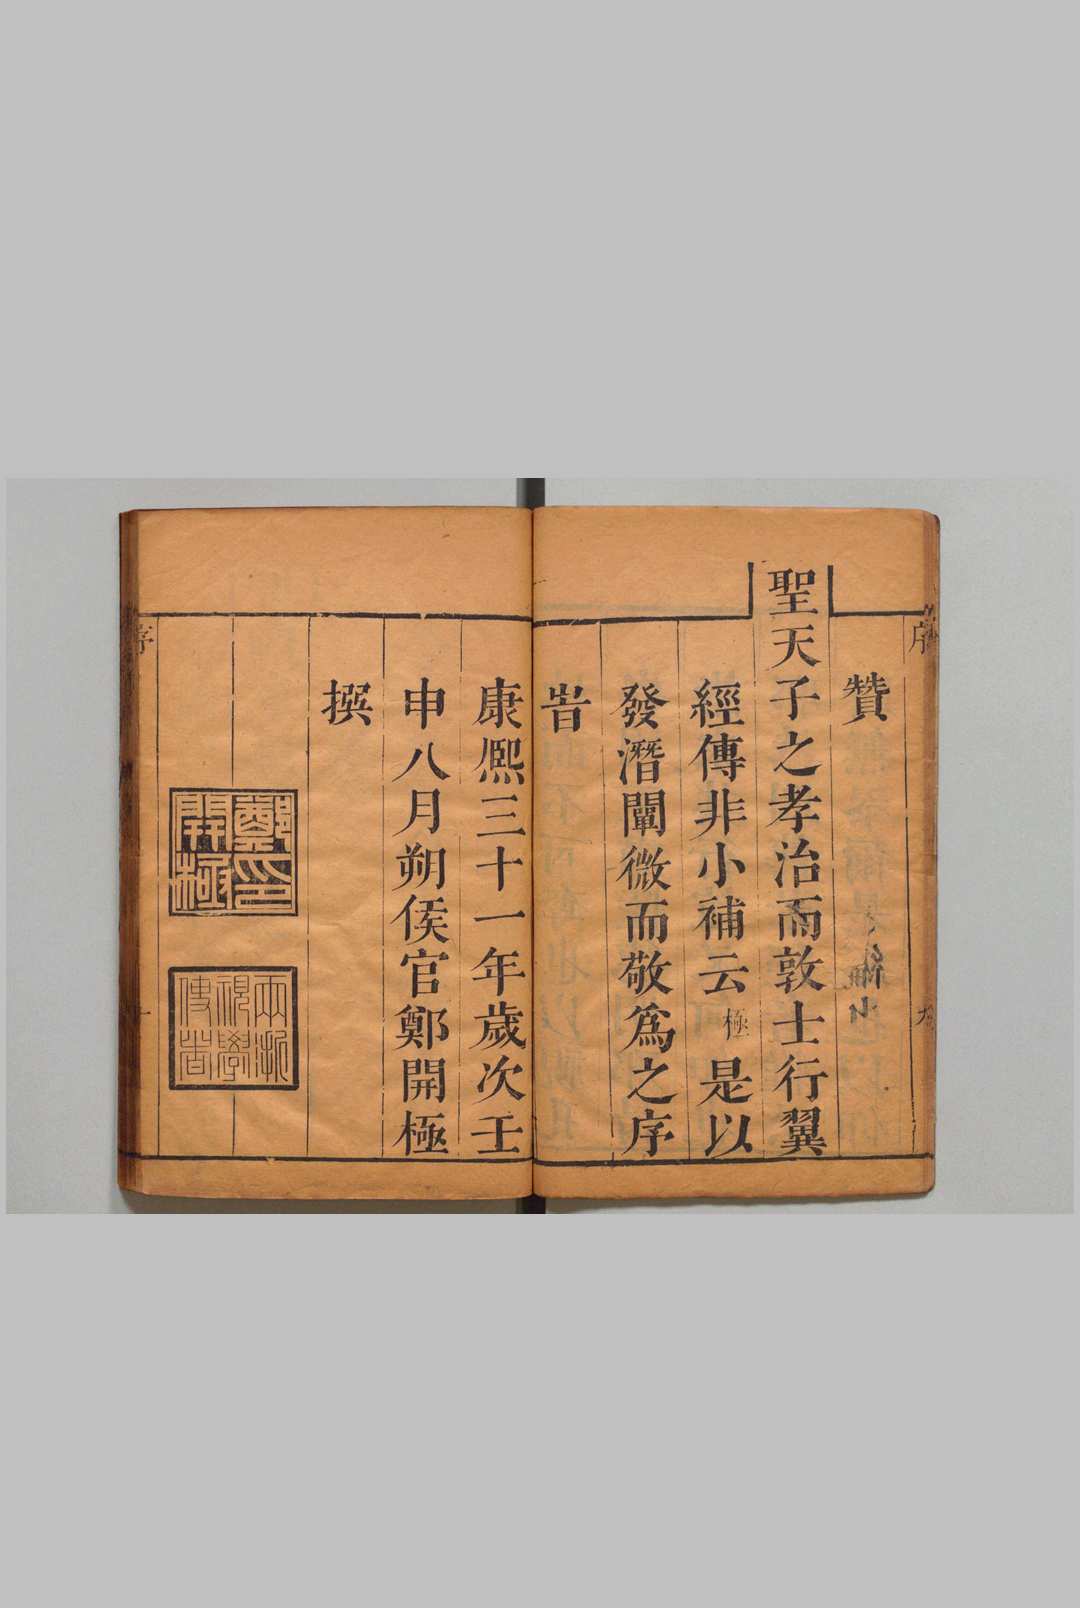 贊
聖天子之孝治而敦士行翼
經傳非小補云極是以
發潛闡微而敬爲之序
旹
康熈三十一年歲次壬
申八月朔侯官鄭開極
撰
鄭印開極
兩浙視學使者
序
序